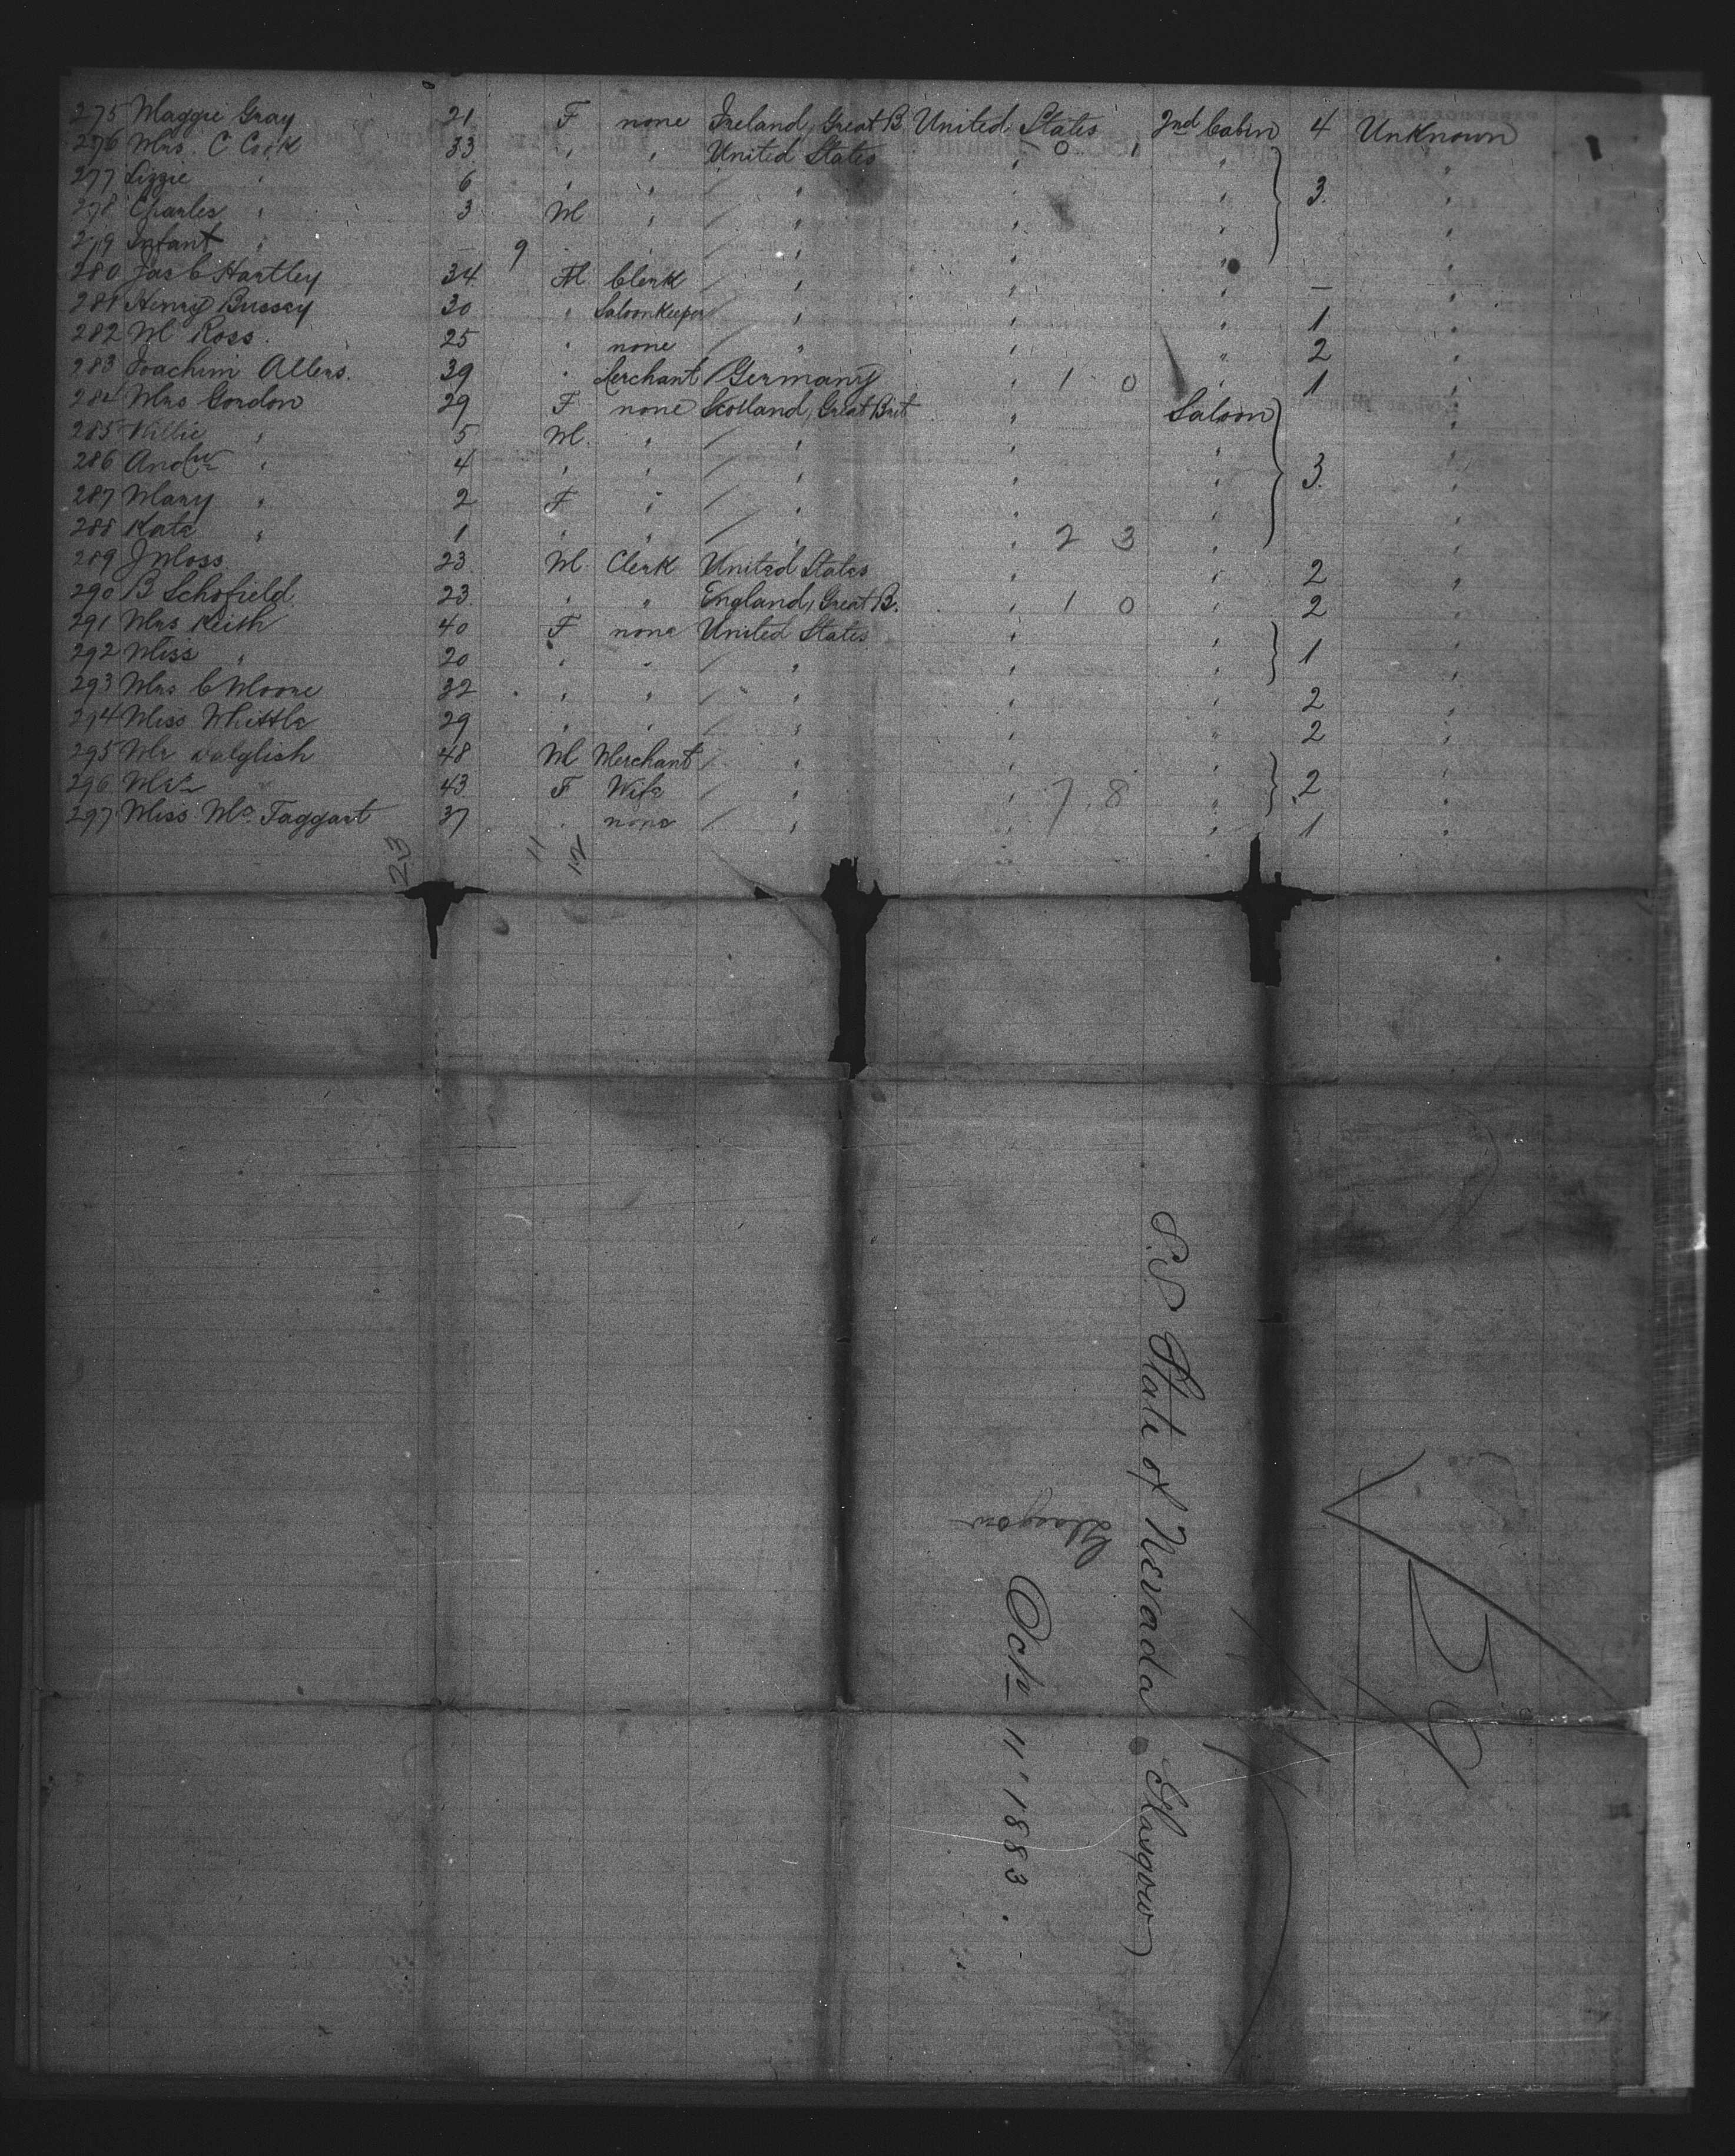 275 Maggie Gray 21 F none Ireland, Great B United States 2nd Cabin 4 Unknown
276 Mrs. C Cook 33 " " United States " 0 1 " "
277 Lizzie " 6 " " / " " " 3 "
278 Charles " 3 M " / " " " "
279 Infant " — 9 " " / " " " "
280 Jas C Hartley 34 M Clerk / " " " — "
281 Henry Bussey 30 " Saloonkeeper / " " " 1 "
282 M Ross 25 " none / " " " 2 "
283 Joachim Allers. 39 " Merchant / Germany " 1 0 " 1 "
284 Mrs Gordon 29 F none Scotland, Great Brit " Saloon "
285 Willie " 5 M. " / " " " "
286 Andw " 4 " " / " " " 3. "
287 Mary " 2 F " / " " " "
288 Kate " 1 " " / " " 2 3 " "
289 J Moss 23 M Clerk United States " " 2 "
290 B Schofield 23 " " England, Great B. " 1 0 " 2 "
291 Mrs Keith 40 F none United States " " "
292 Miss " 20 " " / " " " 1 "
293 Mrs C Moore 32 " " / " " " 2 "
294 Miss Whittle 29 " " / " " " 2 "
295 Mr Dalglish 48 M Merchant / " " " "
296 Mrs " 43 F Wife / " " 7 8 " 2 "
297 Miss Mc Taggart 37 " none / " " " 1 "
23 11 12
S.S State of Nevada Glasgow
Glasgow
Oct 11" 1883.